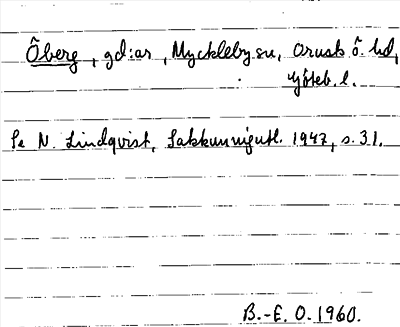 Öberg, gd:ar, Myckleby sn, Orusts ö. hd,
Göteb. l.
Se N. Lindqvist, Sakkunnigutl. 1947, s. 31.
B.-E. O. 1960.